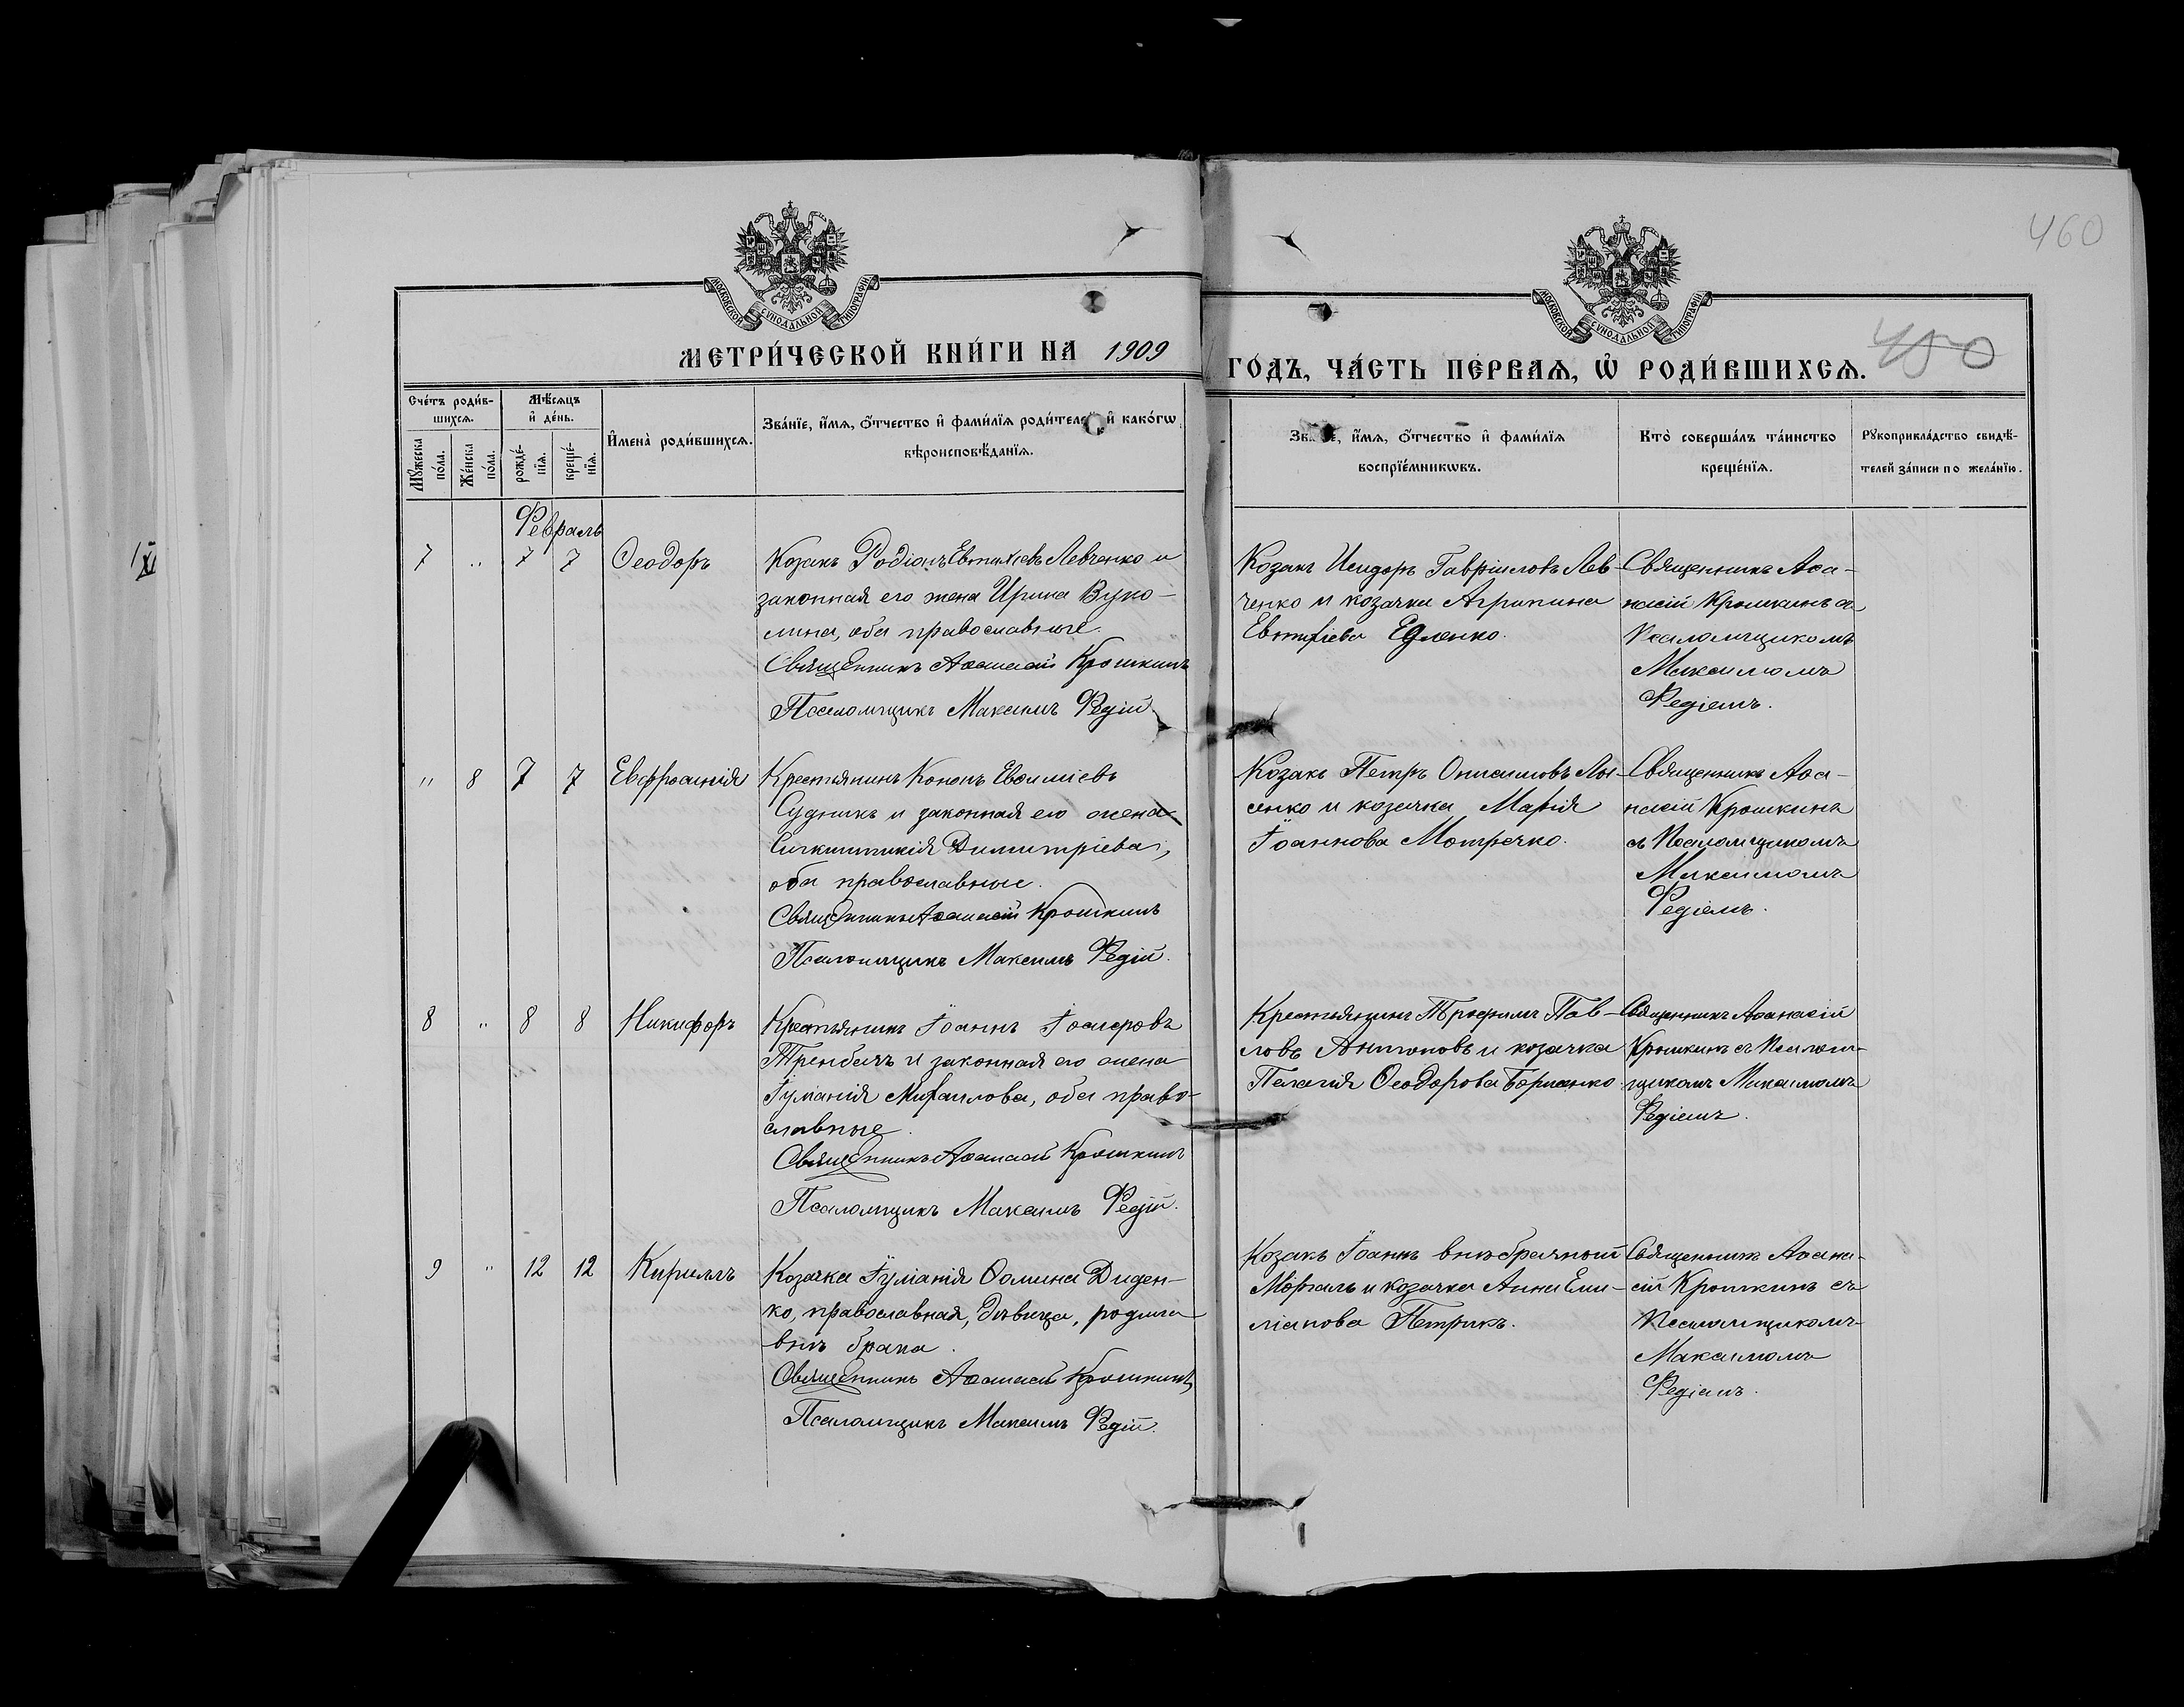 460
МОСКОВСКОЙ СѴНОДАЛЬНОЙ ТИПОГРАФІИ
МОСКОВСКОЙ СѴНОДАЛЬНОЙ ТИПОГРАФІИ
МЕТРИ́ЧЕСКОЙ КНИ́ГИ НА 1909
ГОДЪ, ЧА́СТЬ ПЕ́РВАѦ, Ѽ РОДИ́ВШИХСѦ.
450
Сче́тъ роди́в-
шихсѧ.
Мꙋжеска по́ла.
Же́нска по́ла.
Мѣ́сѧцъ
и҆ де́нь.
рожде́-
нїѧ.
креще́-
нїѧ.
И҆мена̀ роди́вшихсѧ.
Зва́нїе, и҆́мѧ, ѻ҆́тчество и҆ фами́лїѧ роди́телей, и҆ како́гѡ
вѣроисповѣ́данїѧ.
Зва́нїе, и҆́мѧ, ѻ҆́тчество и҆ фами́лїѧ
воспрїе́мникѡвъ.
Кто̀ соверша́лъ та́инство
креще́нїѧ.
Рꙋкоприкла́дство свидѣ́-
телей за́писи по жела́нїю.
Февраль
7 " 7 7 Ѳеодоръ
Козакъ Родіонъ Евтихіевъ Левченко и
законная его жена Ирина Вуко-
лина, оба православные.
Священникъ Аѳанасій Крошкинъ
Псаломщикъ Максимъ Редій
Козакъ Исидоръ Гавріиловъ Лев-
ченко и козачка Агрипина
Евтихіева Едленко.
Священникъ Аѳа-
насій Крошкинъ съ
Псаломщикомъ
Максимомъ
Редіемъ.
" 8 7 7 Евфросинія
Крестьянинъ Кононъ Евѳиміевъ
Судникъ и законная его жена
Синклитикія Димитріева,
оба православные.
Священникъ Аѳанасій Крошкинъ
Псаломщикъ Максимъ Редій.
Козакъ Петръ Онисимовъ Лы-
сенко и козачка Марія
Іоаннова Мотречко.
Священникъ Аѳа-
насій Крошкинъ
съ Псаломщикомъ
Максимомъ
Редіемъ.
8 " 8 8 Никифоръ
Крестьянинъ Іоаннъ Іосифовъ
Трембачъ и законная его жена
Іуліанія Михаилова, оба право-
славные.
Священникъ Аѳанасій Крошкинъ
Псаломщикъ Максимъ Редій.
Крестьянинъ Трофимъ Пав-
ловъ Антоновъ и козачка
Пелагія Ѳеодорова Борисенко.
Священникъ Аѳанасій
Крошкинъ съ Псалом-
щикомъ Максимомъ
Редіемъ.
9 " 12 12 Кириллъ
Козачка Іуліанія Ѳомина Диден-
ко, православная, дѣвица, родила
внѣ брака.
Священникъ Аѳанасій Крошкинъ
Псаломщикъ Максимъ Редій.
Козакъ Іоаннъ внѣбрачный
Моргаль и козачка Анна Еми-
ліанова Петрикъ.
Священникъ Аѳана-
сій Крошкинъ съ
Псаломщикомъ
Максимомъ
Редіемъ.